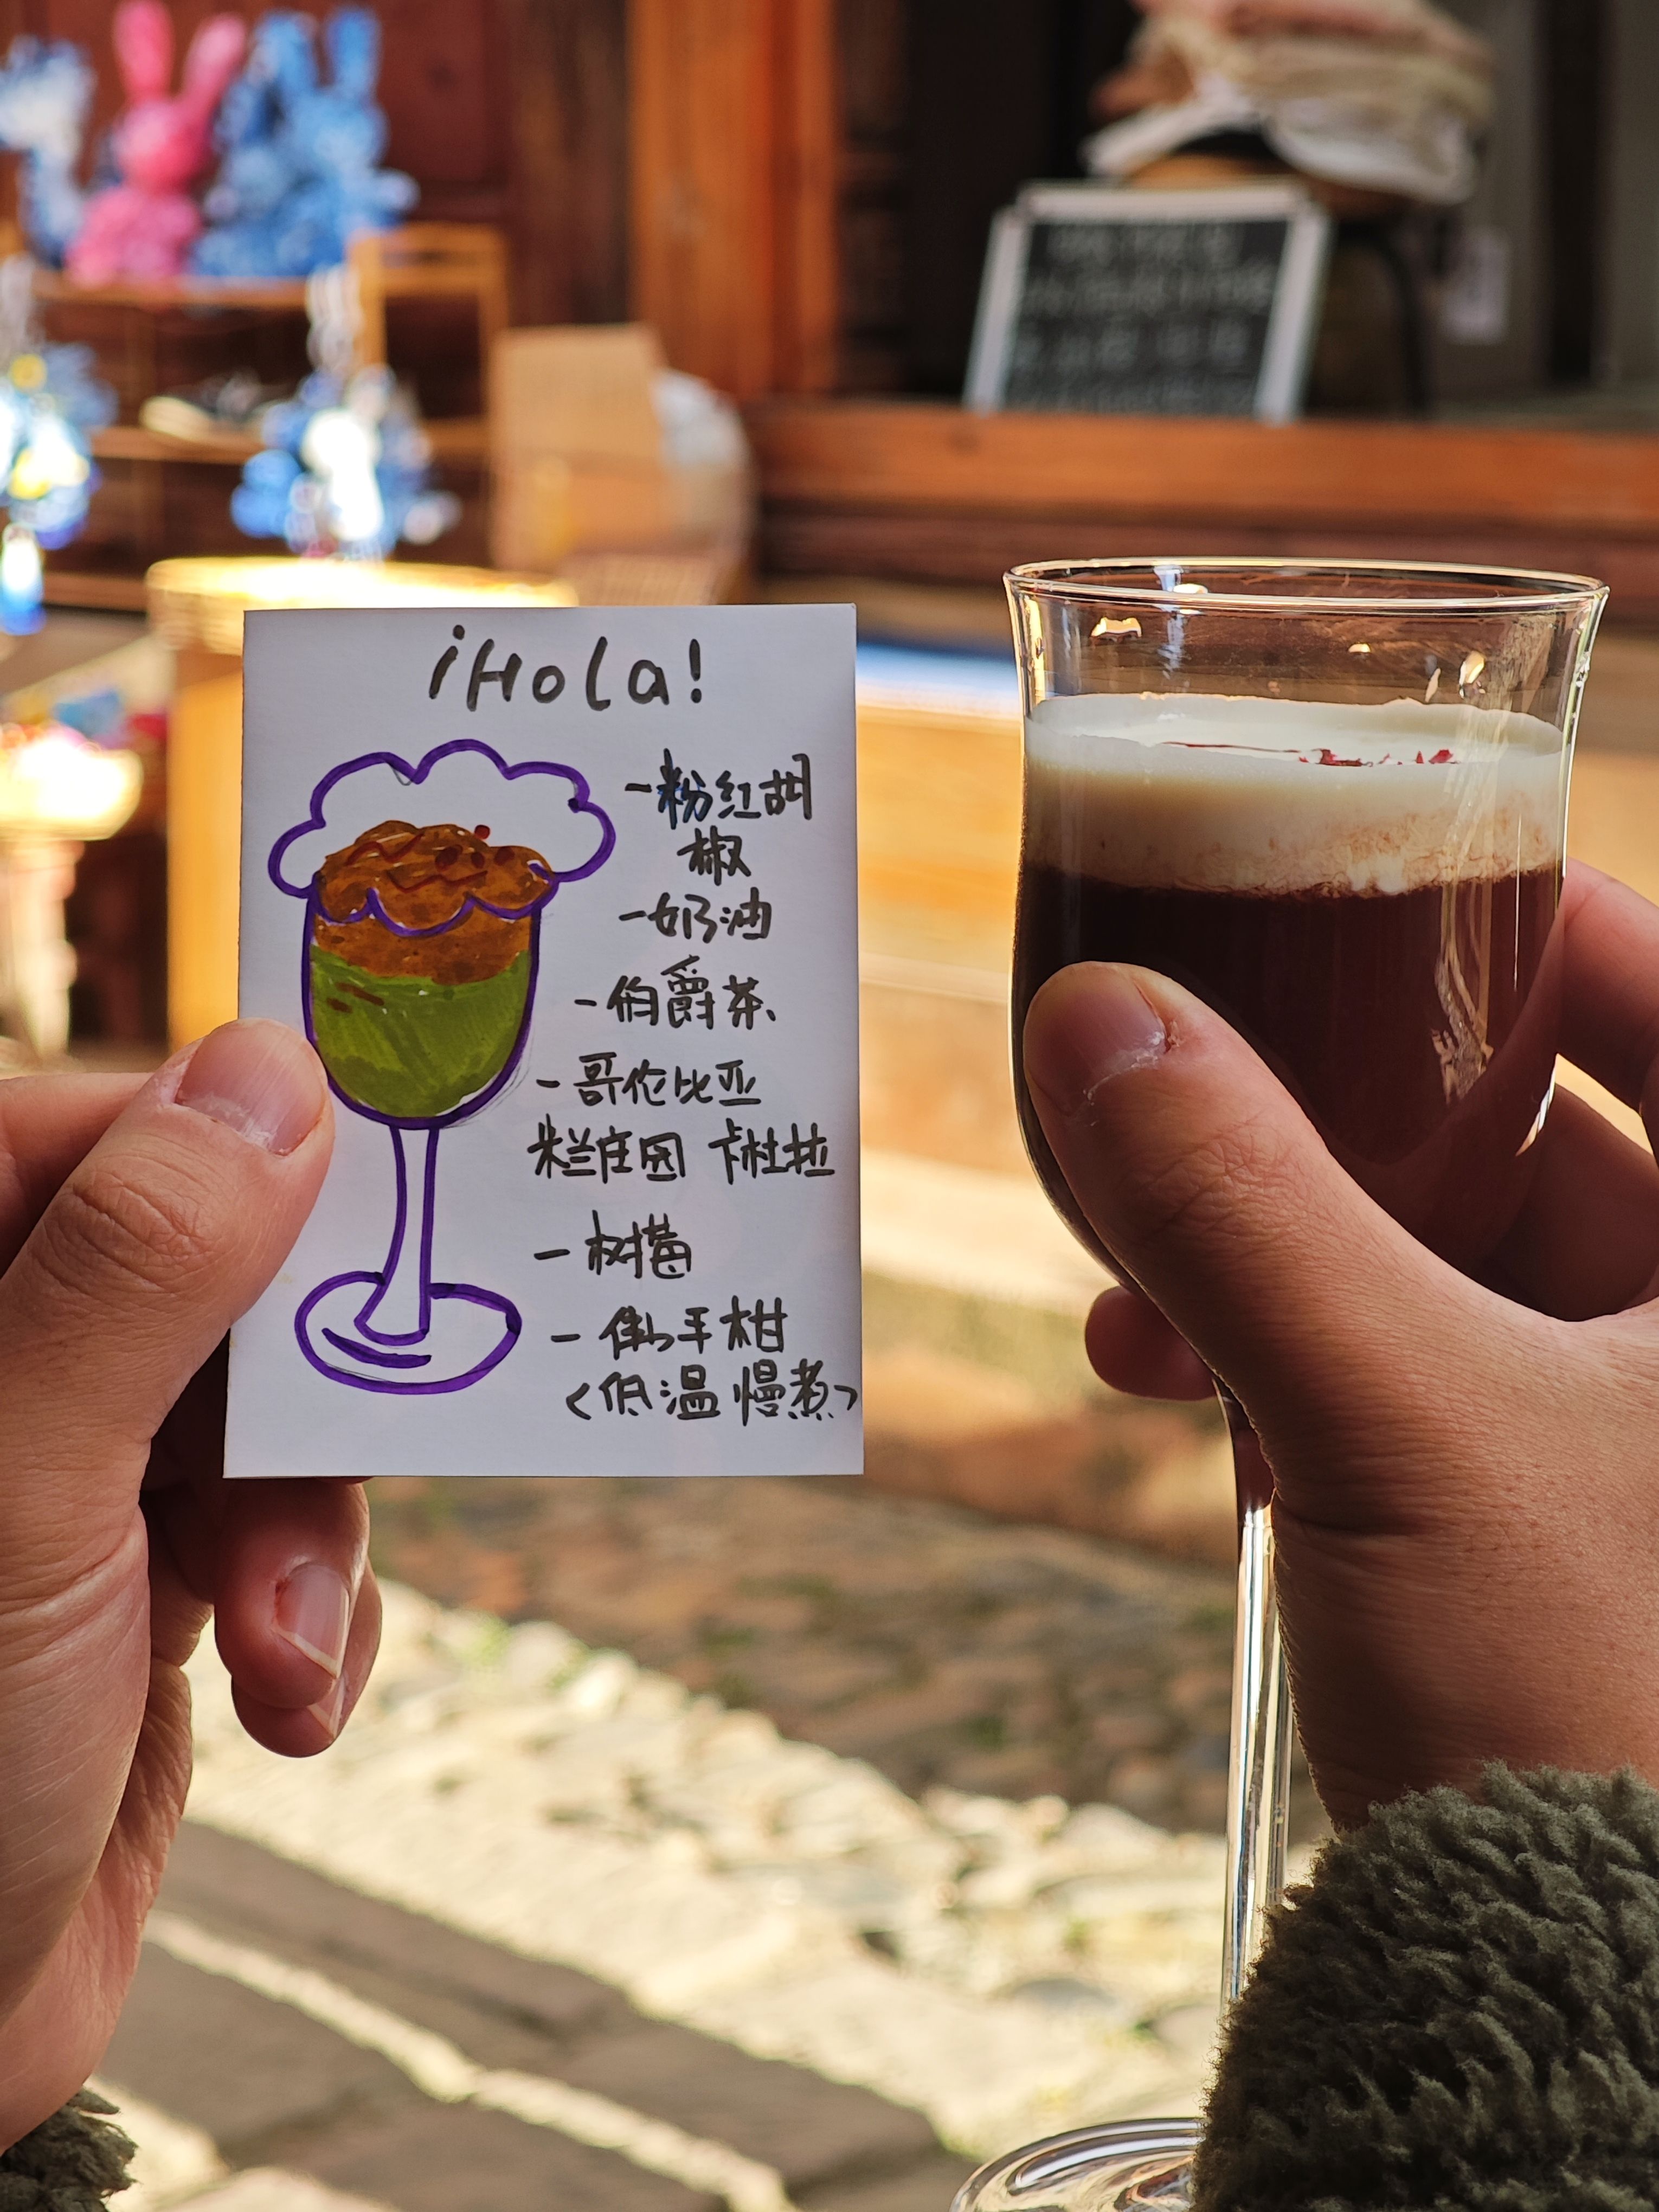 ¡Hola!
-粉红胡
椒
-奶油
-伯爵茶
-哥伦比亚
栏庄园 卡杜拉
-树莓
-佛手柑
<低温慢煮>